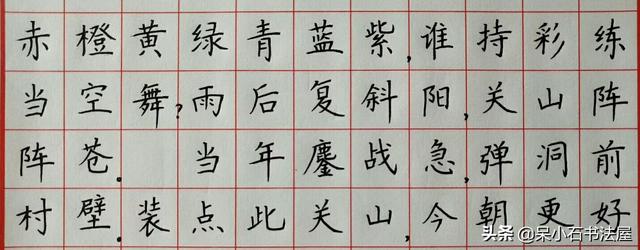 赤橙黄绿青蓝紫,谁持彩练
当空舞?雨后复斜阳,关山阵
阵苍。 当年鏖战急,弹洞前
村壁。装点此关山,今朝更好
头条 @吴小石书法屋